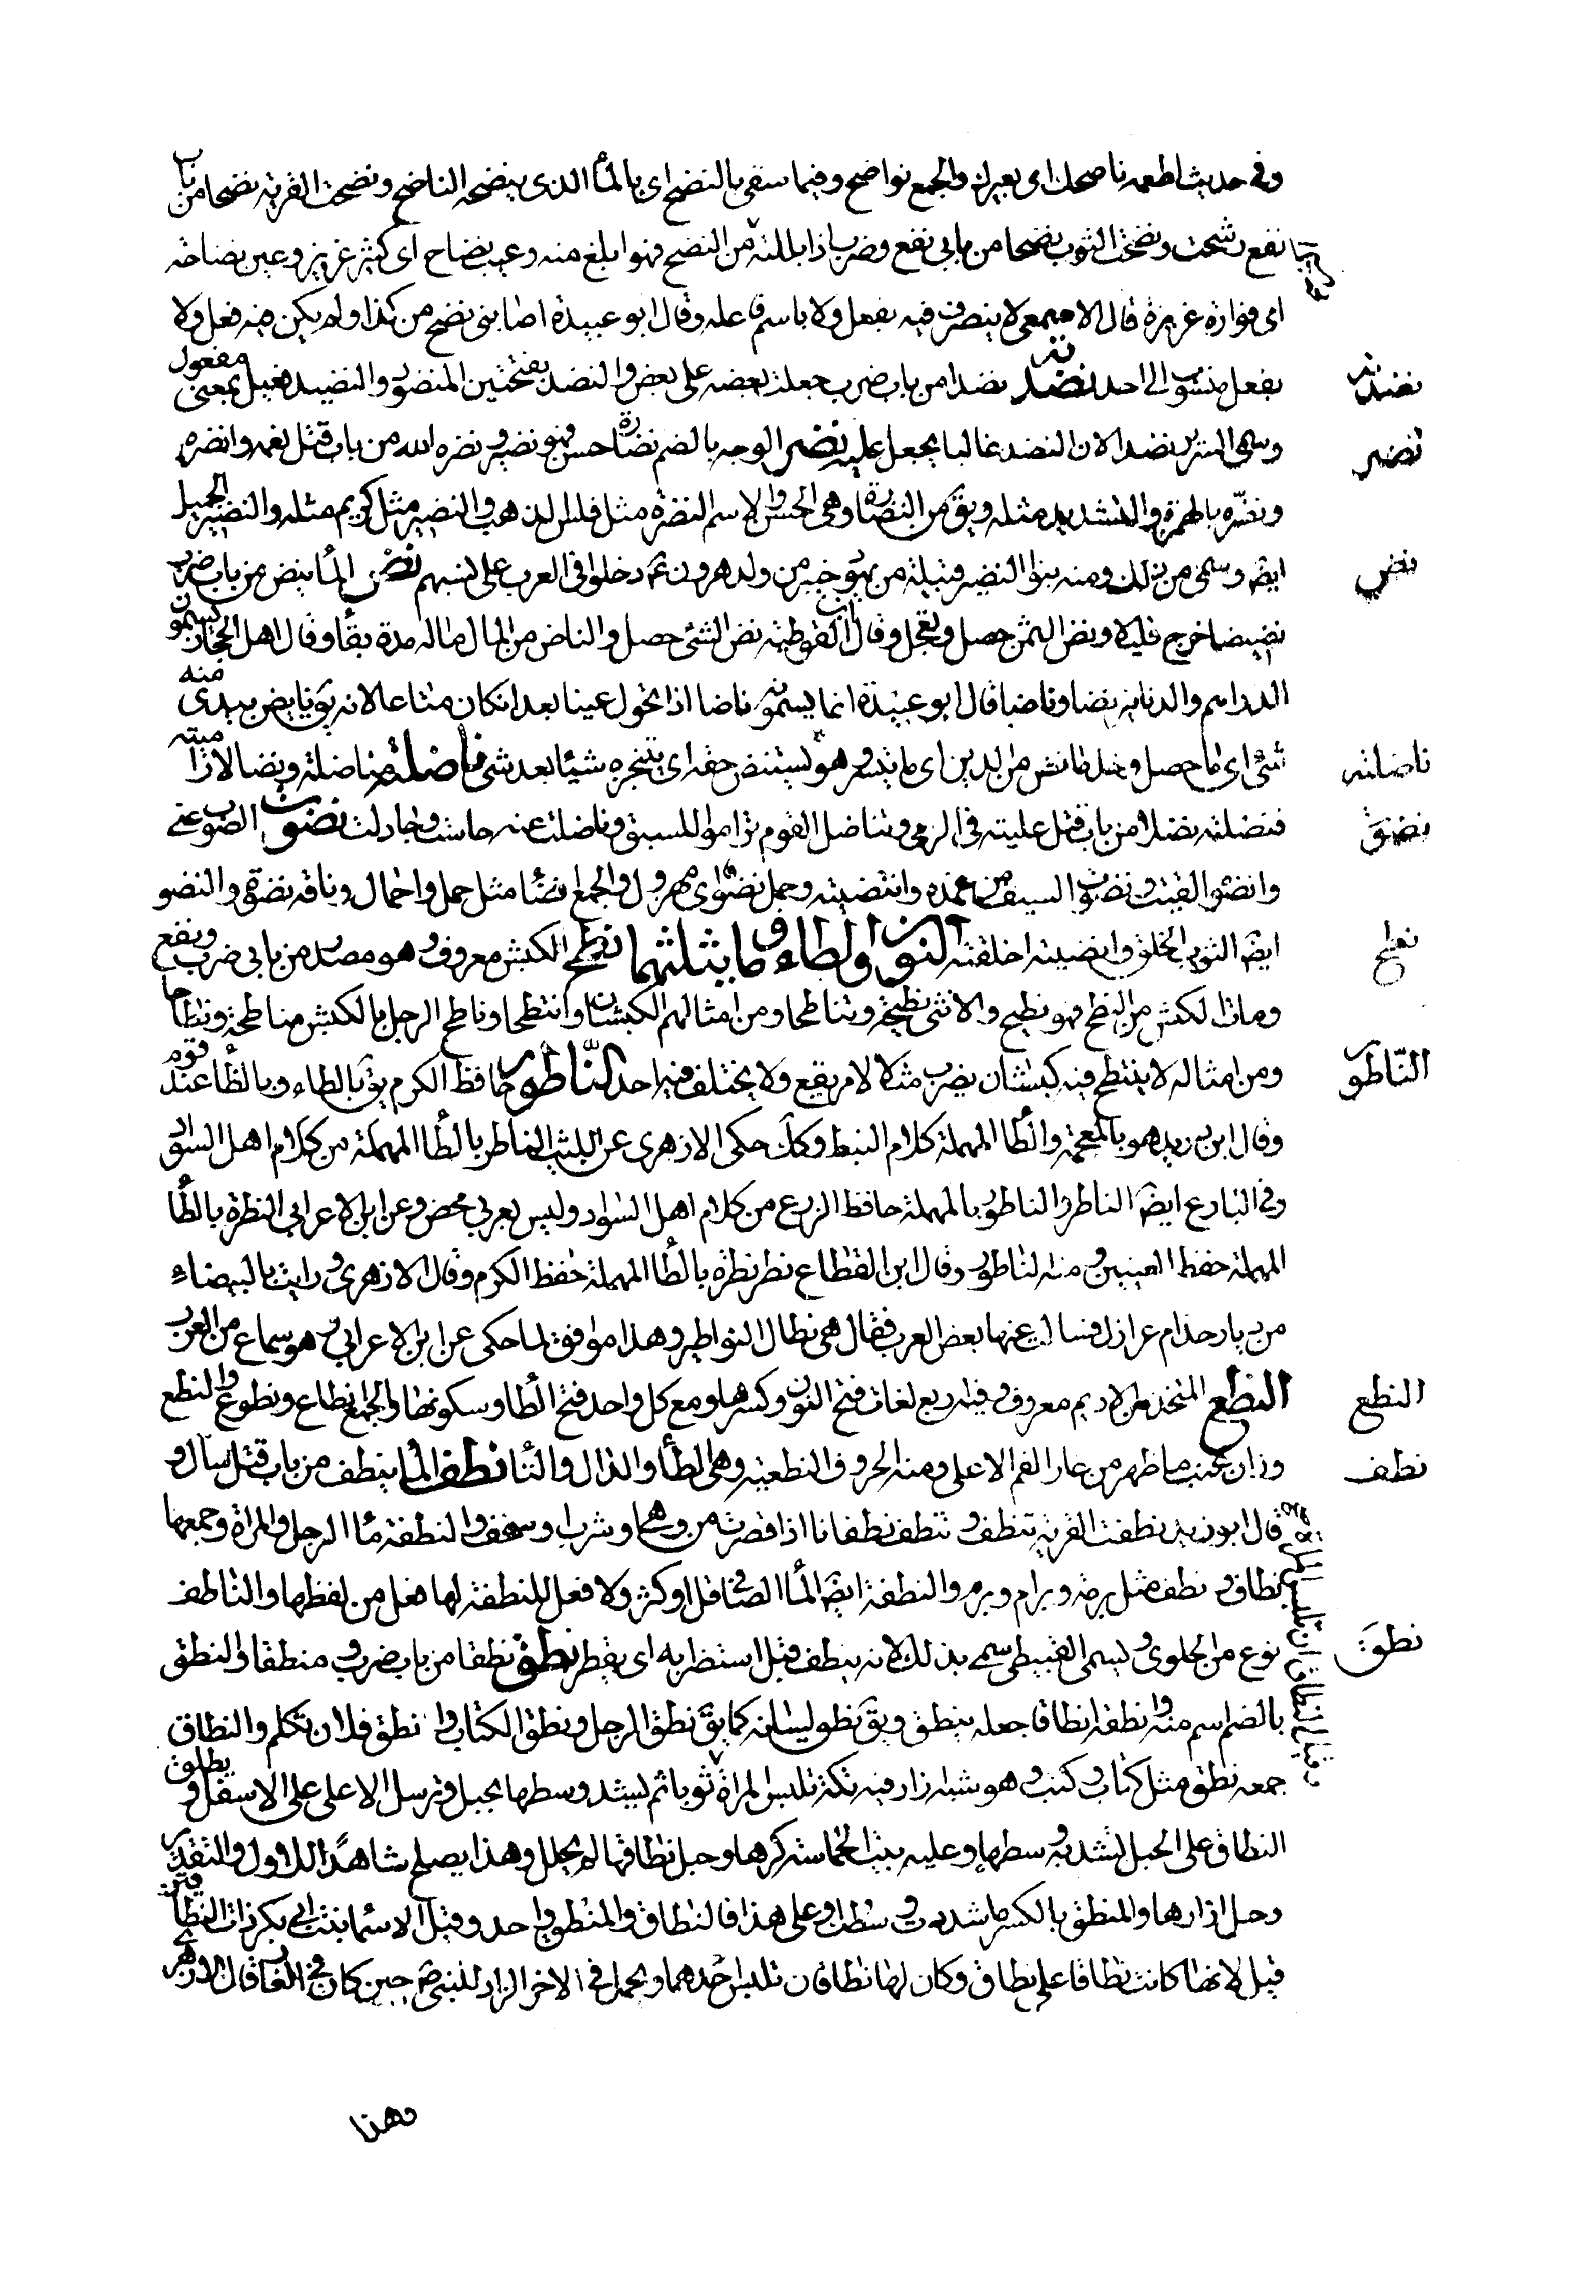 وفي حديث اطعمه ناضحك اى بعيرك والجمع نواضح وفيما سقى بالنضح اى بالمأ الذى ينضحه الناضح ونضحت القربة نضحا من باب
نفع رشحت ونضخت الثوب نضخا من بابى نفع وضرب اذا بللته من النضح فهو ابلغ منه وغيث نضاح اى كثير غزير وعين نضاخة
اى فوارة غزيرة قال الاصمعى لا يتصرف فيه بفعل ولا باسم فاعله وقال ابو عبيدة اصابنى نضح من كذا ولم يكن فيه فعل ولا
يفعل منسوب الى احد نضدته نضدا من باب ضرب جعلت بعضه على بعض والنضد بفتحتين المنضود والنضيد فعيل بمعنى مفعول
وسمى السرير نضدا لان النضد غالبا يجعل عليه نضر الوجه بالضم نضارة حسن فهو نضير ونضره الله من باب قتل نعمه وانضره
ونضّره بالهمزة والتشديد مثله ويق من النضارة وهى الحسن والاسم النضرة مثل فلس الذهب والنضير مثل كريم مثله والنضير الجميل
ايضا وسمى من ذلك ومنه بنوا النضير قبيلة من يهود خيبر من ولد هرون ثم دخلوا فى العرب على نسبهم نض المأ ينض من باب ضرب
نضيضا خرج قليلا ونض الثمن حصل وتعجل وقال ابن القوطية نض الشئ حصل والناض من المال ماله مدة بقأ وقال اهل الحجاز يسمون
الدراهم والدنانير نضا وناضا قال ابو عبيدة انما يسمونه ناضا اذا تحول عينا بعد ان كان متاعا لانه يق ما نض بيدى منه
شئ اى ما حصل وخذ ما نض من الدين اى ما تيسر وهو يستنض حقه اى يتنجزه شيئا بعد شئ ناضلته مناضلة ونضالا راميته
فنضلته نضلا من باب قتل غلبته فى الرمى وتناضل القوم تراموا للسبق وناضلت عنه حاميت وجادلت نضوت الثوب عنى
وانضو القيته ونضوت السيف من غمده وانتضيته وجمل نضو اى مهزول والجمع انضأ مثل حمل واحمال وناقة نضوة والنضو
ايضا الثوب الخلق وانضيته اخلقته النون والطاء وما يثلثهما نطح الكبش معروف وهو مصدر من بابى ضرب ونفع
ومات الكبش من النطح فهو نطيح والانثى نطيحة وتناطحا ومن امثالهم الكبشان وانتطحا وناطح الرجل بالكبش مناطحة ونطاحا
ومن امثاله لا ينتطح فيه كبشان يضرب مثلا لامر يقع ولا يختلف فيه احد النّاطور حافظ الكرم يق بالطاء وبالظأ عند قوم
وقال ابن دريد هو بالمعجمة والطأ المهملة كلام النبط وكك حكى الازهرى عن الليث الناطر بالطأ المهملة من كلام اهل السواد
وفى البارع ايضا الناطر والناطور بالمهملة حافظ الزرع من كلام اهل السواد وليس بعربى محض وعن ابن الاعرابى النطرة بالطأ
المهملة حفظ العينين ومنه الناطور وقال ابن القطاع نطر نطرة بالطأ المهملة حفظ الكرم وقال الازهرى ورايت بالبيضاء
من ديار جذام عرازل فسالت عنها بعض العرب فقال هى نظال النواطير وهذا موافق لما حكى عن ابن الاعرابى وهو سماع من العرب
النطع المتخذ من الاديم معروف وفيه اربع لغات فتح النون وكسرها ومع كل واحد فتح الطأ وسكونها والجمع انطاع ونطوع والنطع
وزان عنب ما ظهر من غار الفم الاعلى ومنه الحروف النطعية وهى الطأ والدال والتأ نطف المأ ينطف من باب قتل سال و
قال ابو زيد نطفت القربة تنطف وتنطف نطفانا اذا قطرت من وهى او شراب او سخف والنطفة مأ الرجل والمراة وجمعها
نطاف ونطف مثل برمة وبرام وبرم والنطفة ايضا المأ الصافى قل او كثر ولا فعل للنطفة لها فعل من لفظها والناطف
نوع من الحلوى ويسمى القبيطى سمى بذلك لانه ينطف قبل استضرابه اى يقطر نطق نطقا من باب ضرب ومنطقا والنطق
بالضم اسم منه وانطقه انطاقا جعله ينطق ويق نطق لسانه كما يق نطق الرجل ونطق الكتاب ونطق فلان تكلم والنطاق
جمعه نطق مثل كتاب وكتب وهو شبه ازار فيه تكة تلبس المراة ثوبا ثم تشد وسطها بحبل وترسل الاعلى على الاسفل ويطلق
النطاق على الحبل تشد به وسطها وعليه بيت الحماسة كرها وحبل نطاقها لم يحلل وهذا يصلح شاهدًا للاول والتقدير
وحل ازارها والمنطق بالكسر ما شددت به وسطك وعلى هذا فالنطاق والمنطق واحد وقيل لاسمأ بنت ابى بكر ذات النطاقين
قيل لانها كانت نطاقا على نطاق وكان لها نطاقان تلبس احدهما وتحمل فى الاخر الزاد للنبى صم حين كان فى الغار قال الازهرى
وهذا
نضدته
نضر
نض
ناضلته
نضوت
نطح
النّاطور
النطع
نطف
نطق